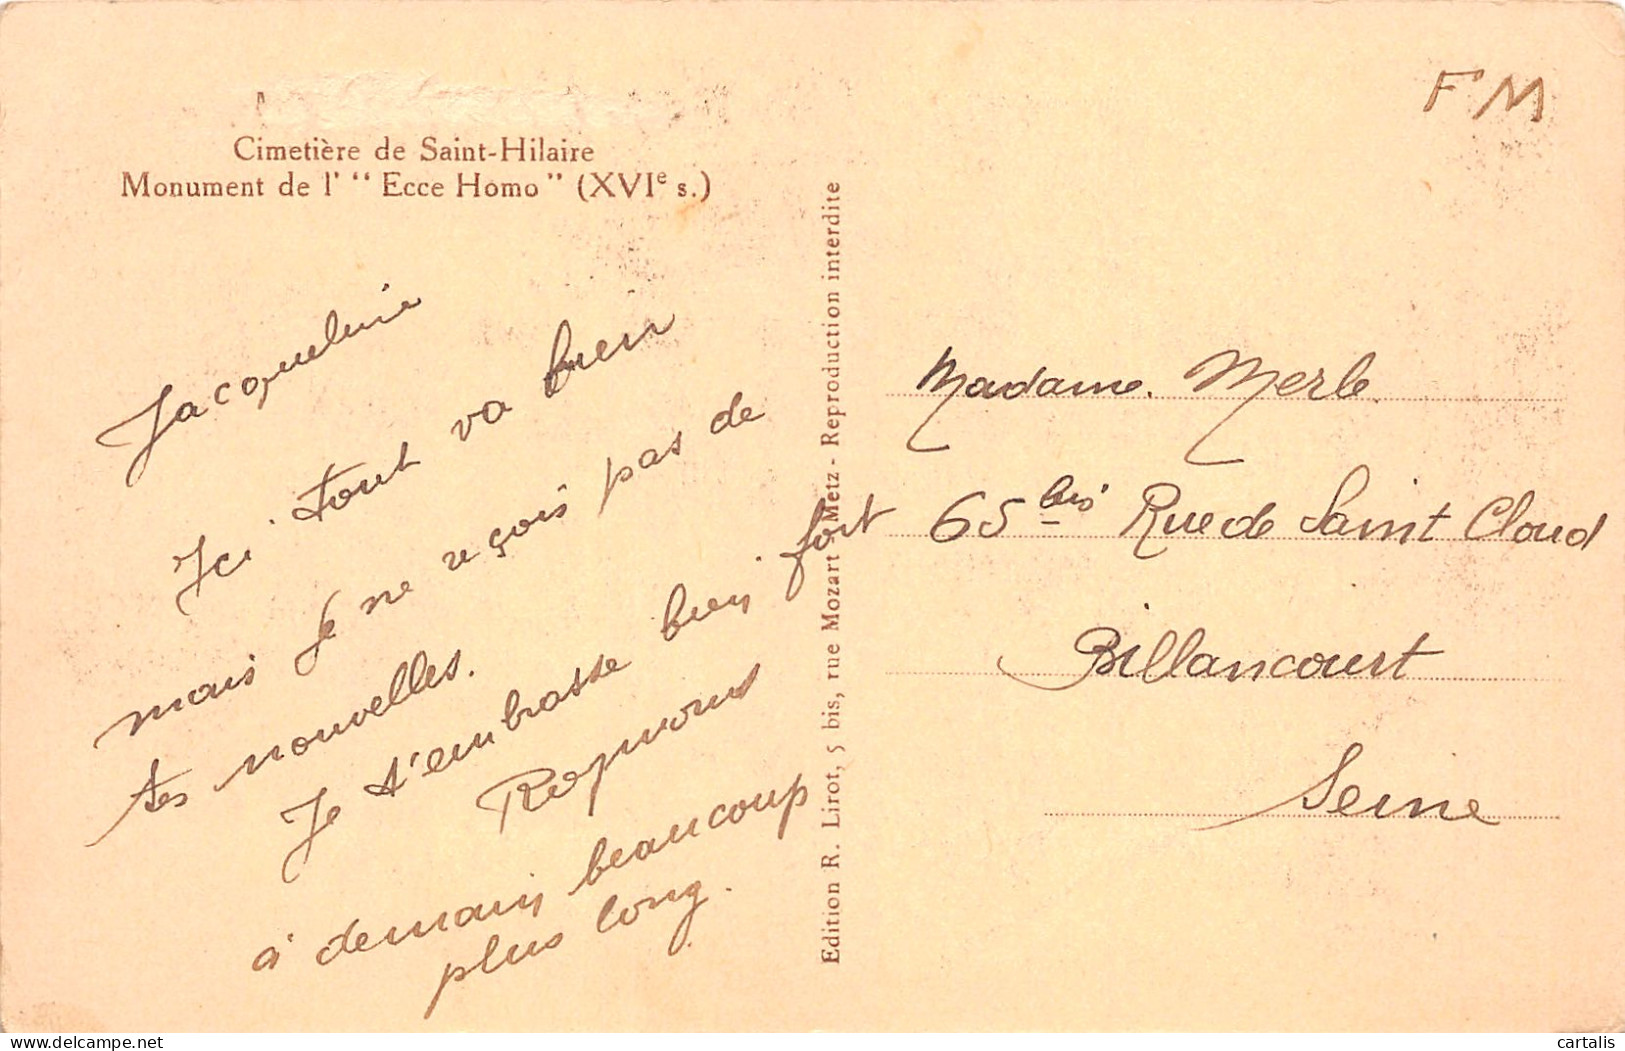 Cimetière de Saint-Hilaire
Monument de l' "Ecce Homo" (XVIe s.)
Jacqueline
Ici tout va bien
mais je ne reçois pas de
tes nouvelles.
Je t'embrasse bien fort
à demain beaucoup
plus long.
Edition R. Lirot, 5 bis, rue Mozart Metz - Reproduction interdite
F M
Madame. Merle.
65 bis Rue de Saint Cloud
Billancourt
Seine
www.delcampe.net
cartalis